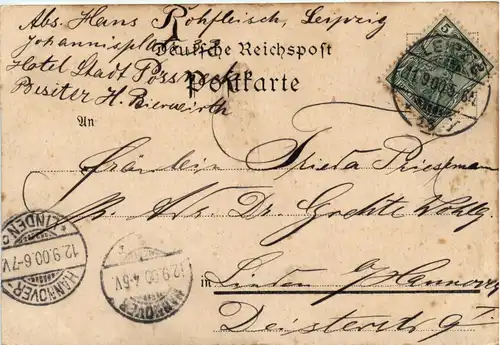 Abs. Hans Rohfleisch, Leipzig
Johannisplatz
Hotel Stadt Pössneck
Besitzer H. Bierwirth
Deutsche Reichspost
Postkarte
An
Fräulein Frieda
p. Ads. Dr.
in Linden b/Hannover
Deisterstr. 9 I.
LEIPZIG
11.9.00.5-6N.
HANNOVER-LINDEN
12.9.00.6-7V.
HANNOVER
12.9.00.4-5V